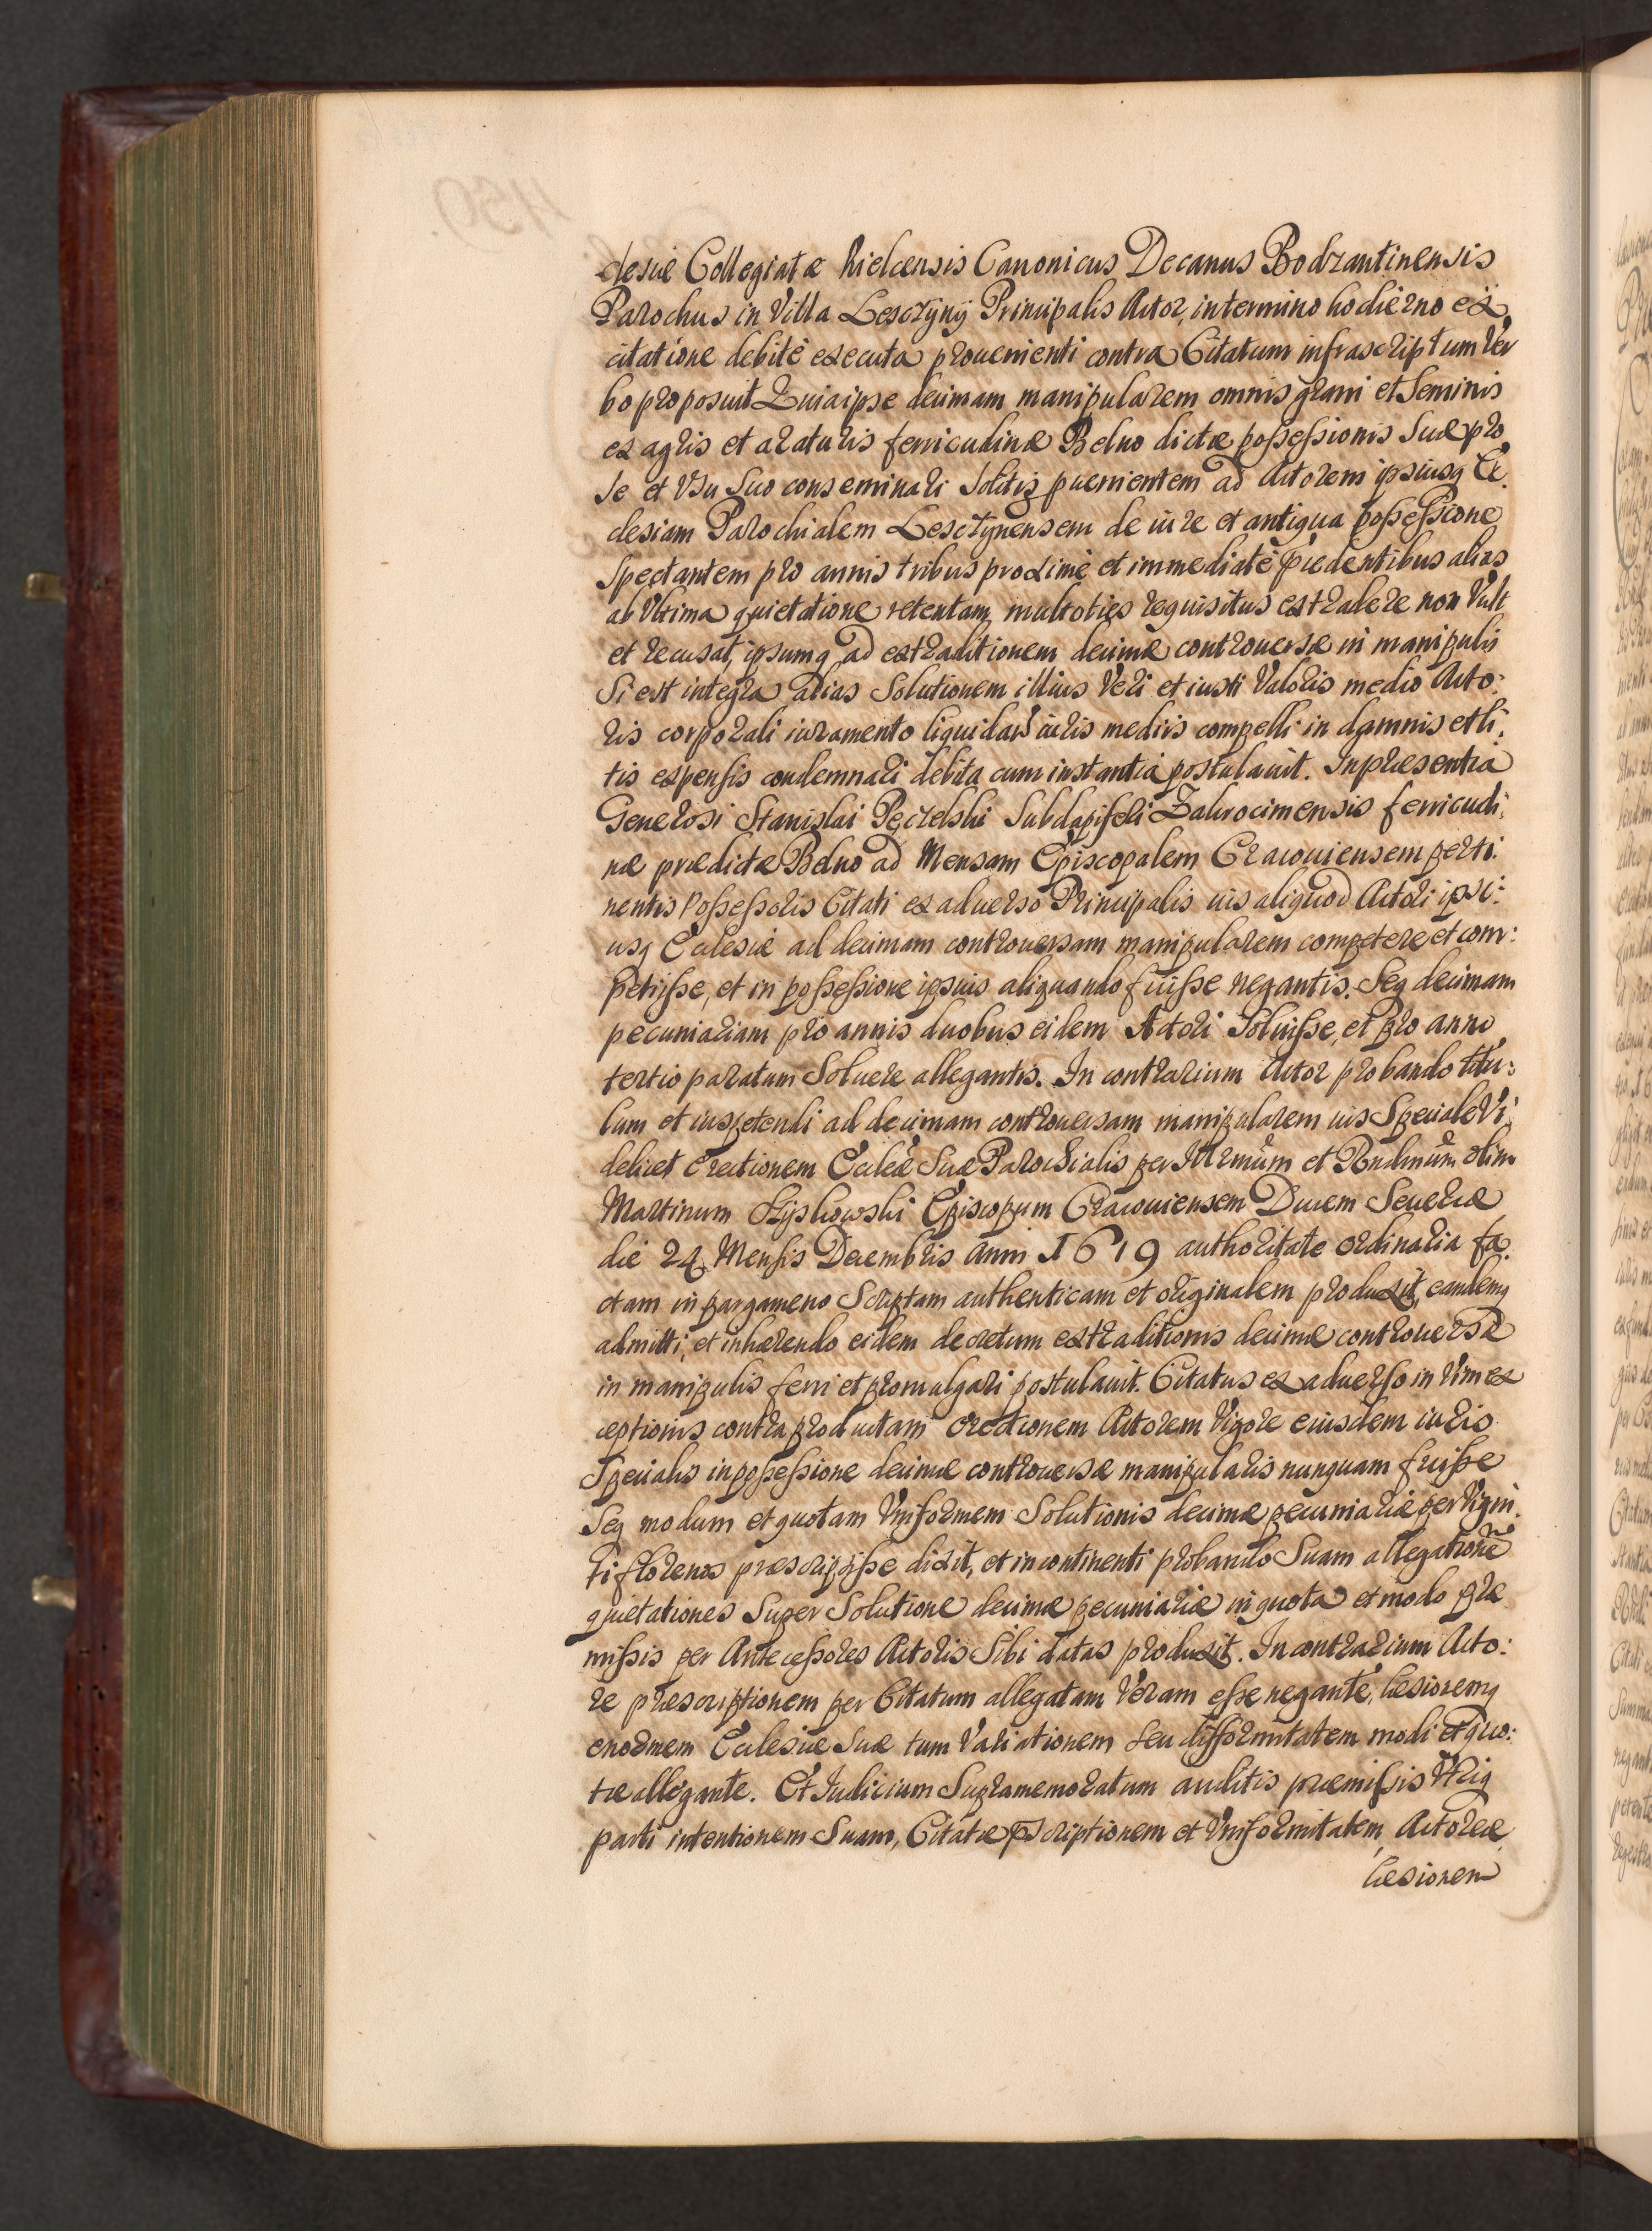 clesiæ Collegiatæ Kielcensis Canonicus Decanus Bodzantinensis
Parochus in Villa Lesczÿnÿ Principalis Actor, in termino hodierno ex
citatione debitè executa prouenienti contra Citatum infrascriptum Ver
bo proposuit Quia ipse decimam manipularem omnis grani et Seminis
ex agris et araturis ferricudinæ Belno dictæ possessionis Suæ pro
se et Vsu Suo conseminari Solitis puenientem ad Actorem ipsiusq Ec.
clesiam Parochialem Lesczynensem de iure et antiqua possessione
Spectantem pro annis tribus proximè et immediatè pcedentibus alias
ab Vltima quietatione retentam multoties requisitus extradere non Vult
et recusat, ipsumq ad extraditionem decimæ controuersæ in manipulis
Si est integra alias Solutionem illius Veri et iusti Valoris medio Acto:
ris corporali iuramento liquidand iuris mediis compelli in damnis et li:
tis expensis condemnari debita cum instantia postulauit. In præsentia
Generosi Stanislai Pęczelski Subdapiferi Zakrocimensis ferricudi:
næ prædictæ Belno ad Mensam Episcopalem Cracouiensem perti:
nentis Possessoris Citati ex aduerso Principalis ius aliquod Actori ipsi:
usq Ecclesiæ ad decimam controuersam manipularem competere et com:
petiisse, et in possessione ipsius aliquando fuisse negantis. Seq decimam
pecuniariam pro annis duobus eidem Actori Soluisse, et pro anno
tertio paratum Soluere allegantis. In contrarium Actor probando titu:
lum et ius petendi ad decimam controuersam manipularem ius Speciale Vi:
delicet erectionem Eccleæ Suæ Parochialis per Illrmum et Rndmum olim
Martinum Szÿszkowski Episcopum Cracouiensem Ducem Seueriæ
die 24 Mensis Decembris anni 1619 authoritate ordinaria fa:
ctam in pargameno Scriptam authenticam et originalem produxit, eandemq
admitti, et inhærendo eidem decretum extraditionis decimæ controuersæ
in manipulis ferri et promulgari postulauit. Citatus ex aduerso in Vim ex
ceptionis contra productam erectionem Actorem Vigore eiusdem iuris
Specialis in possessione decimæ controuersæ manipularis nunquam fuisse
Seq modum et quotam Vniformem Solutionis decimæ pecuniariæ per Vigin:
ti florenos præscripsisse dixit, et in continenti probando Suam allegationē
quietationes Super Solutione decimæ pecuniariæ in quota et modo præ
missis per Antecessores Actoris Sibi datas produxit. In contrarium Acto:
re præscriptionem per Citatum allegatam Veram esse negante, læsionemq
enormem Ecclesiæ Suæ tum Variationem seu difformitatem modi et quo:
tæ allegante. Et Iudicium Supramemoratum auditis præmissis Vtriq
parti intentionem Suam, Citatæ pscriptionem et Vniformitatem, Actoreæ
læsionem